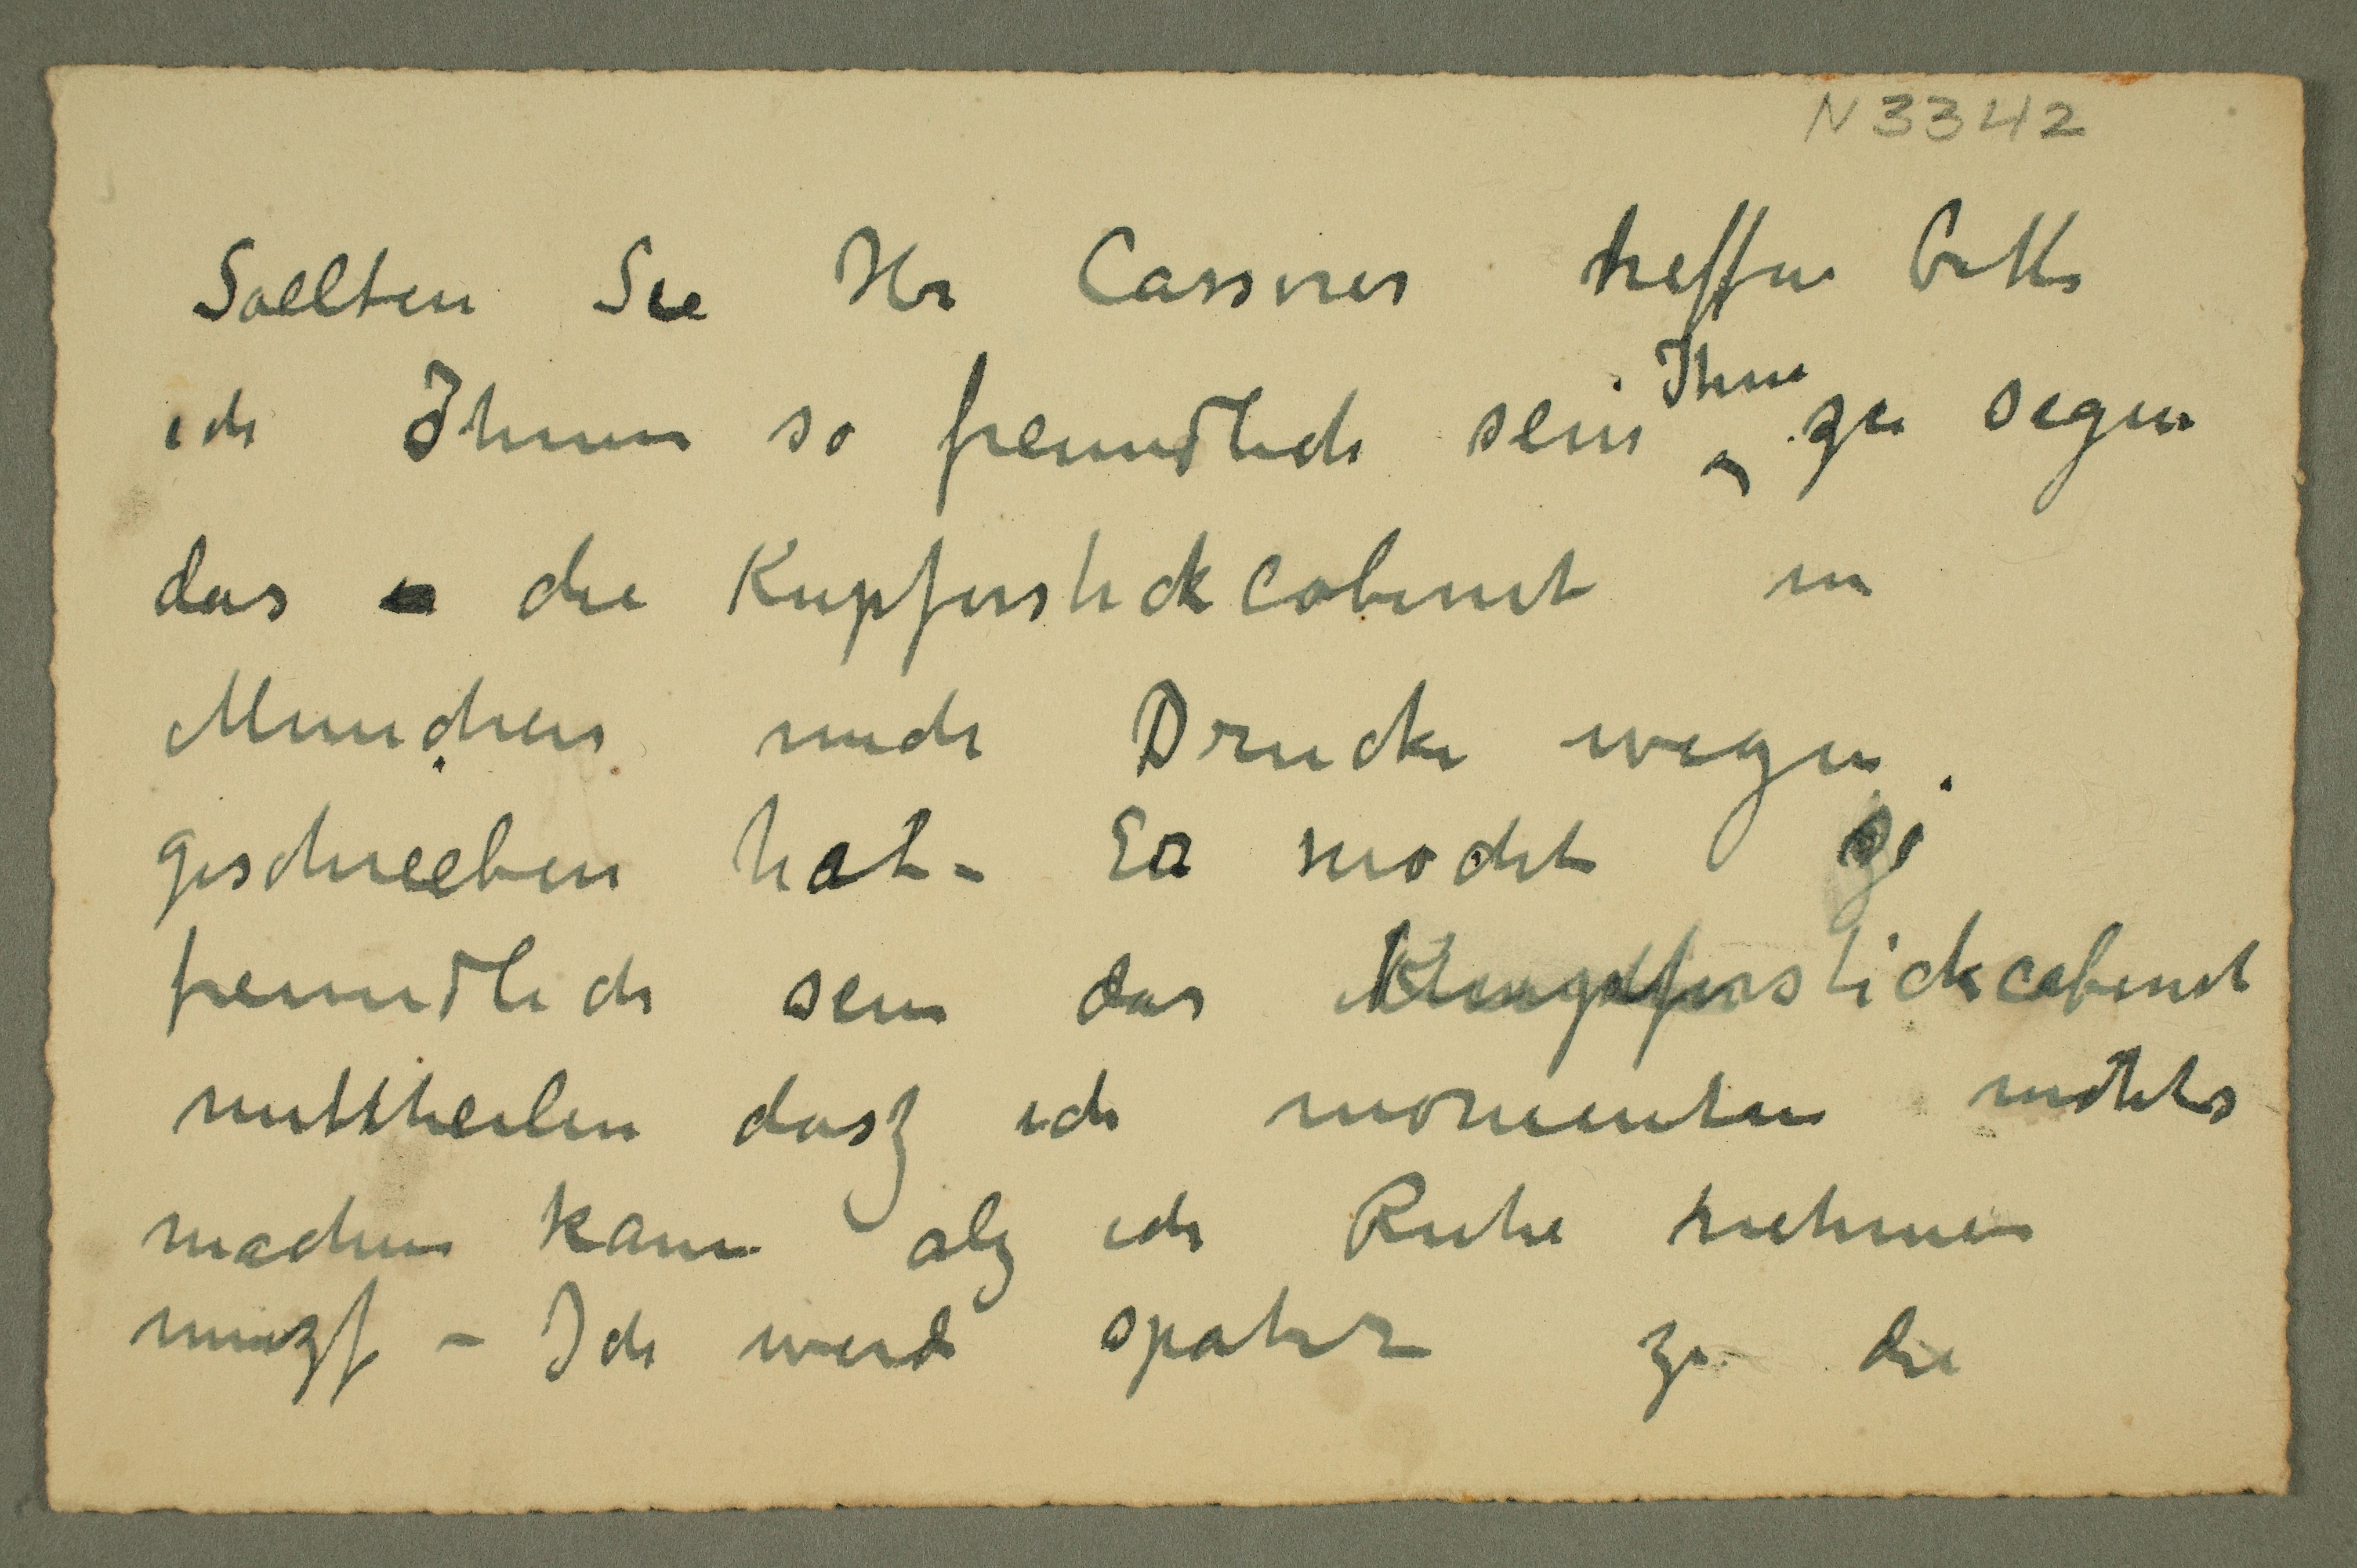 N 3342
Sollten Sie Hr Cassirer treffen bitte
ich Ihnen so freundlich sein Ihm zu segen
das die Kupferstickcabinet in
Munchen mich Drucke wegen
geschrieeben hat – Er mocht so
freundlich sein das Kupferstickcabinet
mittheilen dasz ich momentan nichts
machen kann alz ich Ruhe nehmen
muszs – Ich werd spater zu die